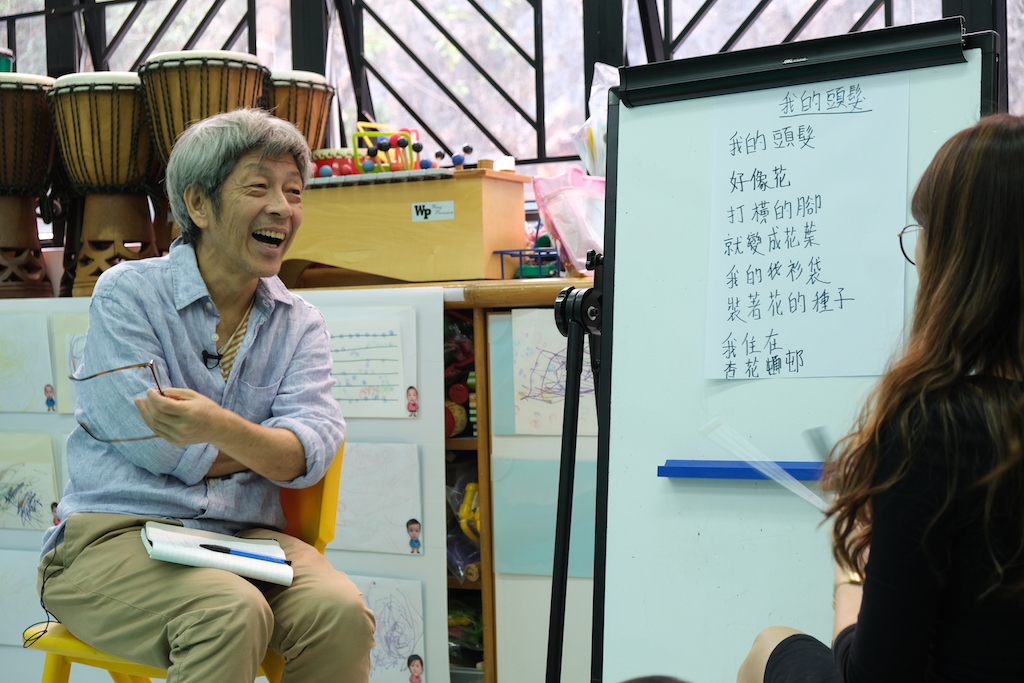 Wp
我的頭髮
我的頭髮
好像花
打橫的腳
就變成花葉
我的恤衫袋
裝著花的種子
我住在
杏花邨